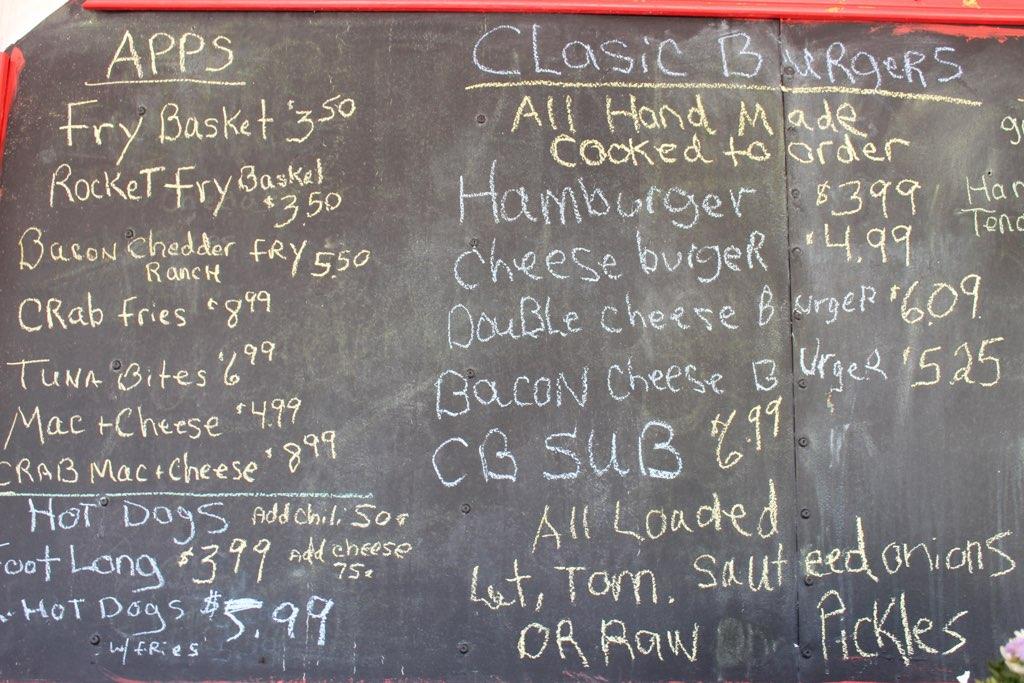 APPS
Fry Basket $3.50
Rocket Fry Basket
$3.50
Bacon Chedder FRY 5.50
Ranch
CRab fries $8.99
TUNA Bites 6.99
Mac + Cheese $4.99
CRAB Mac + Cheese $8.99
HOT DOGS Add Chili 50¢
Foot Long $3.99 Add cheese
75¢
HOT DOGS $5.99
w/ FRies
CLasic BURgERS
All Hand Made
Cooked to order
Hamburger $3.99
Cheese burgeR $4.99
DouBLe cheese BurgeR $6.09
BACON Cheese BUrgeR $5.25
CB SUB $6.99
All Loaded
Let, Tom. Sauteed onions
OR RAW Pickles